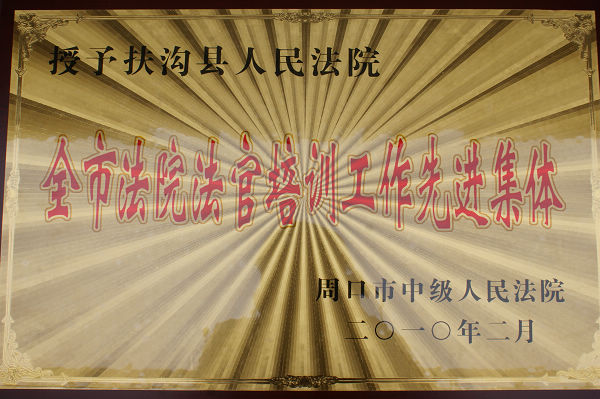 授予扶沟县人民法院
全市法院法官培训工作先进集体
周口市中级人民法院
二〇一〇年二月